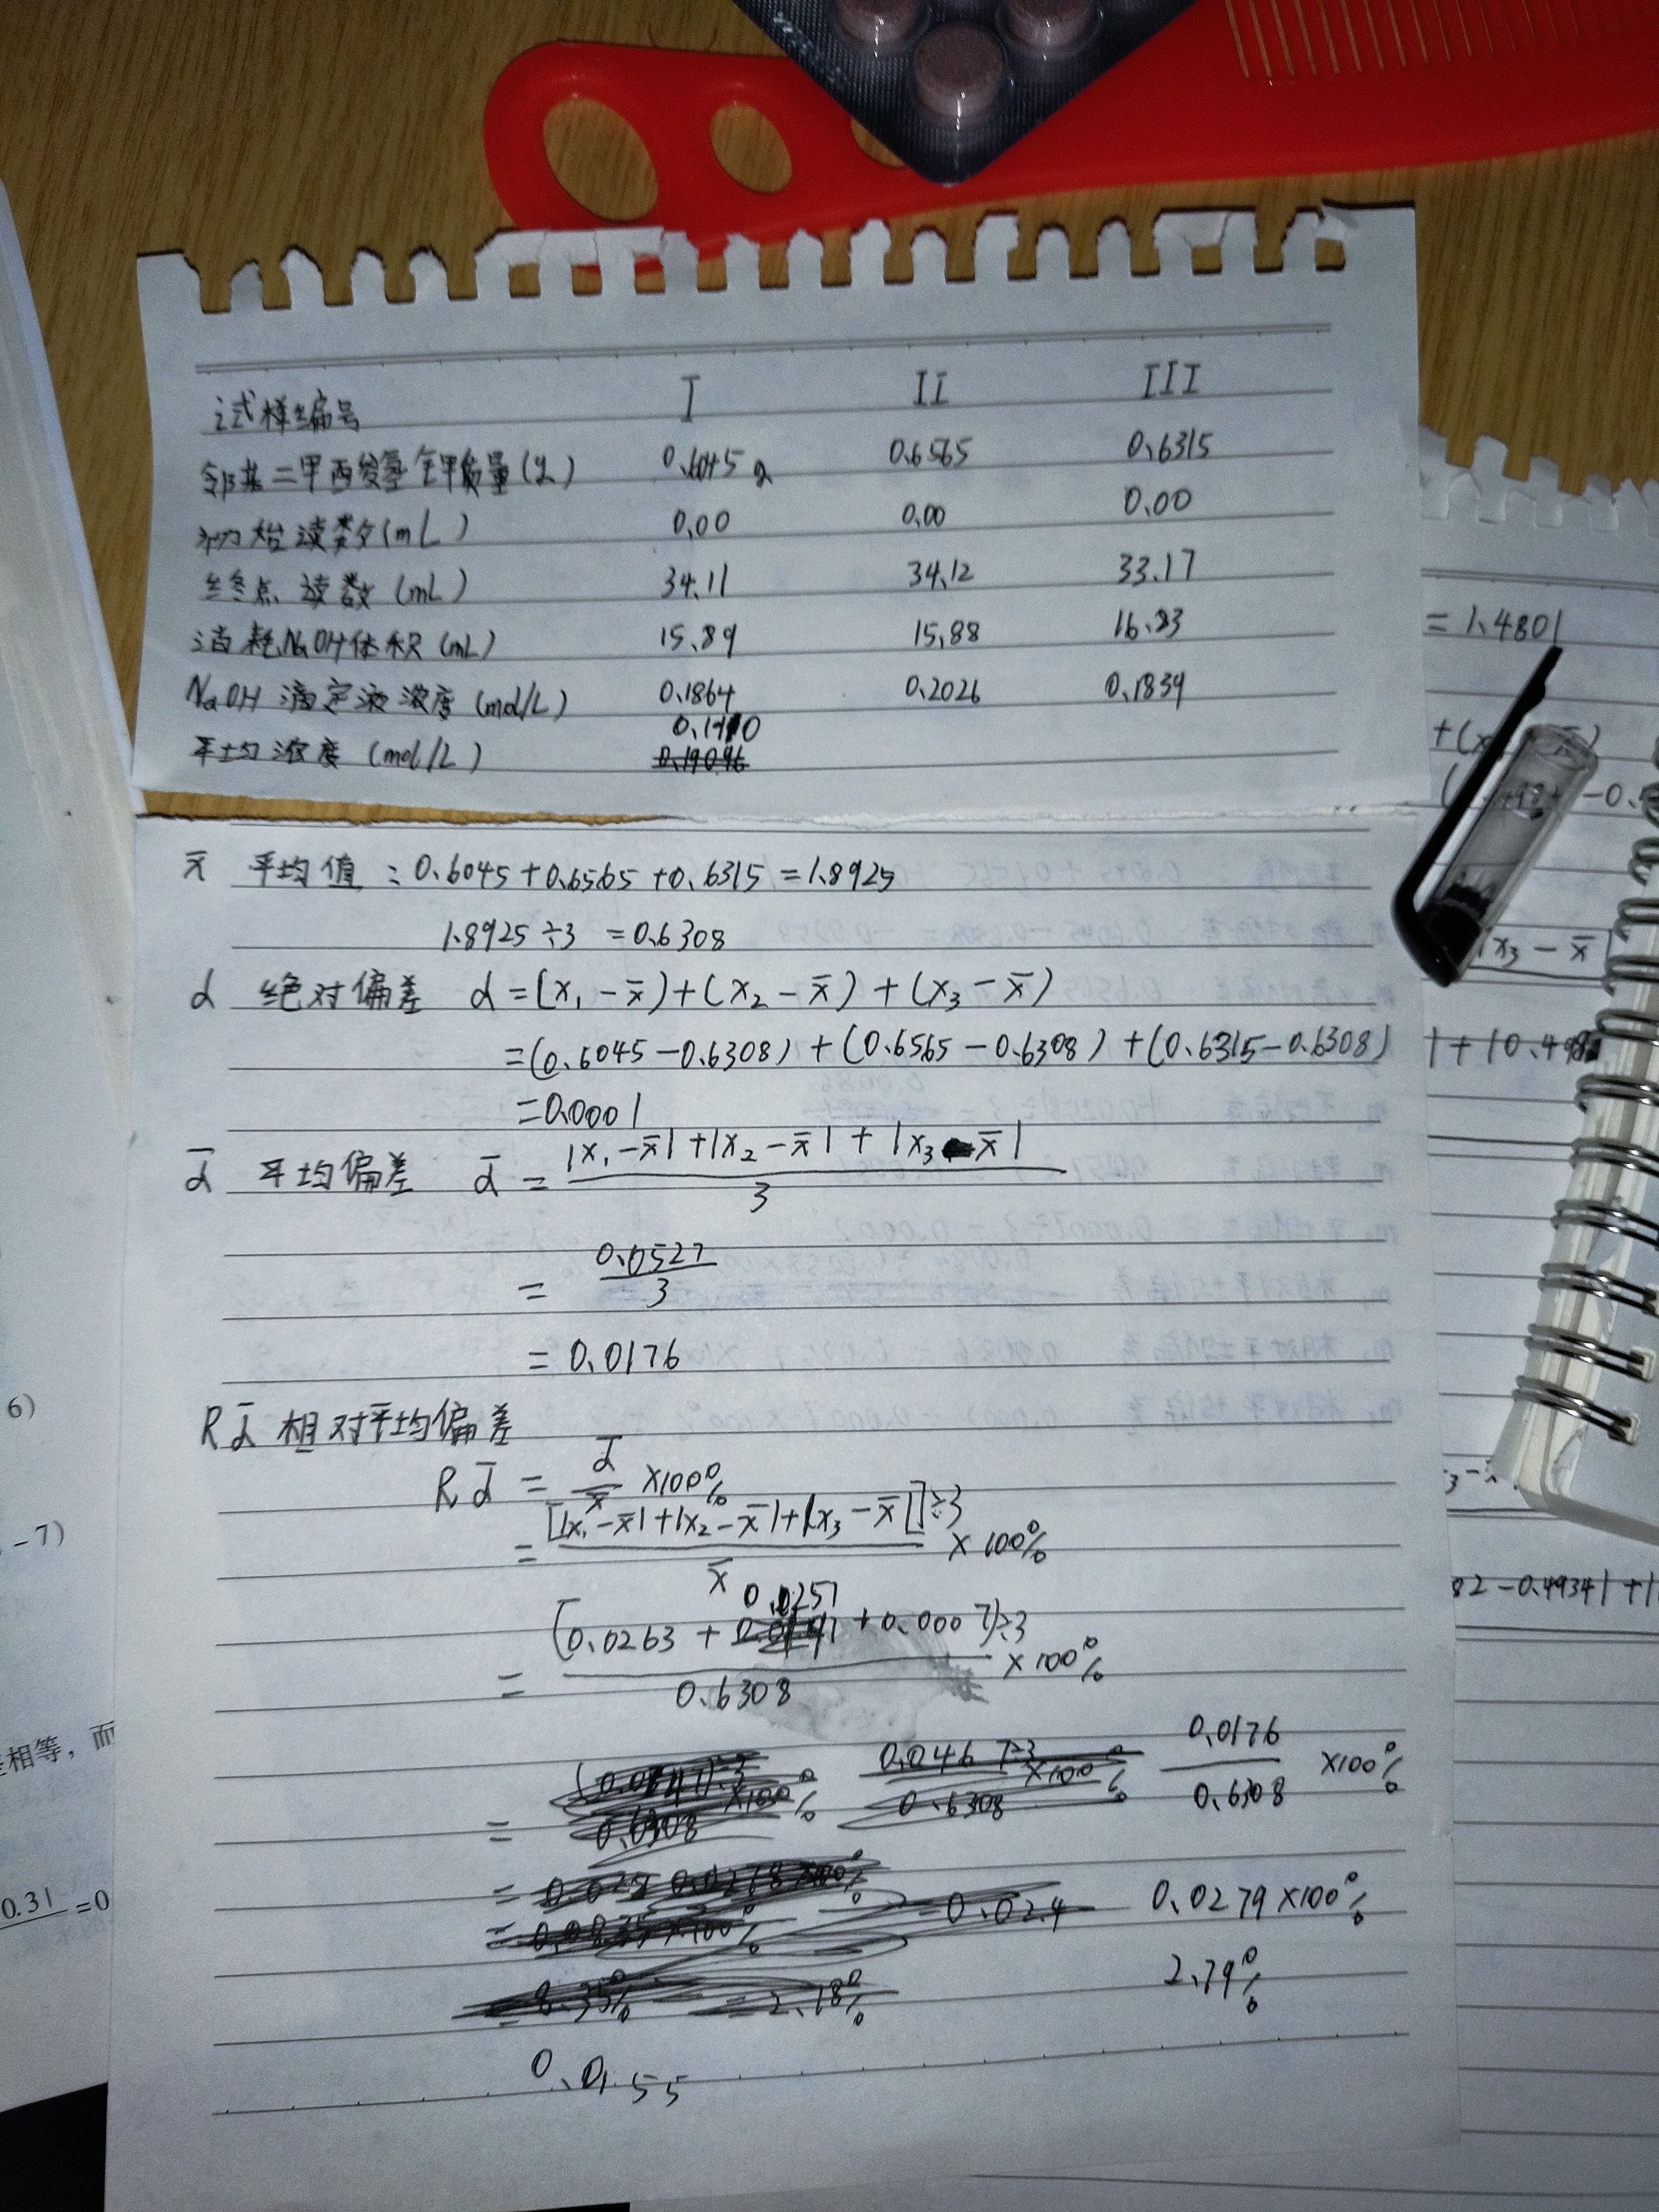 试样编号 I II III
邻苯二甲酸氢钾质量(g) 0.6045g 0.6565 0.6315
初始读数(mL) 0.00 0.00 0.00
终点读数(mL) 34.11 34.12 33.17
消耗NaOH体积(mL) 15.89 15.88 16.83
NaOH滴定液浓度(mol/L) 0.1864 0.2026 0.1839
平均浓度(mol/L) 0.1910
x̄ 平均值:0.6045+0.6565+0.6315=1.8925
1.8925÷3 =0.6308
d 绝对偏差 d=(x₁-x̄)+(x₂-x̄)+(x₃-x̄)
=(0.6045-0.6308)+(0.6565-0.6308)+(0.6315-0.6308)
=0.0001
d̄ 平均偏差 d̄= |x₁-x̄|+|x₂-x̄|+|x₃-x̄|
3
= 0.0527
3
= 0.0176
Rd̄ 相对平均偏差
Rd̄ = d̄ ×100%
x̄
= [|x₁-x̄|+|x₂-x̄|+|x₃-x̄|]÷3 ×100%
x̄
= (0.0263+0.0257+0.0007)÷3 ×100%
0.6308
= 0.0467÷3 ×100% 0.0176 ×100%
0.6308 0.6308
=0.024 0.0279×100%
=2.18% 2.79%
0.0155
=1.4801
x₃-x̄
82-0.4934|+|
6)
-7)
相等，而
0.31 =0